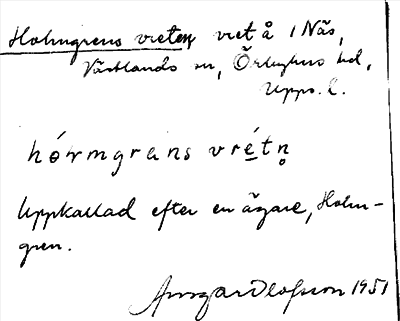 Holmgrens vreten vret å 1 Näs,
Västlands sn, Örbyhus hd,
Upps. l.
hó​rmgrans vrétn̥
Uppkallad efter en ägare, Holm-
gren.
Ansgar Olofsson 1951